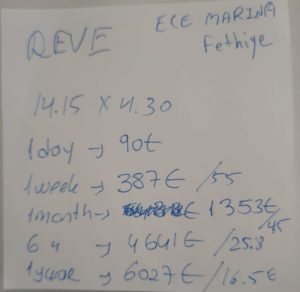 REVE ECE MARINA
Fethiye
14.15 X 4.30
1day → 90€
1week → 387€ /55
1month → 1353€ /45
6 → 4641€ /25.8
1year → 6027€ /16.5€